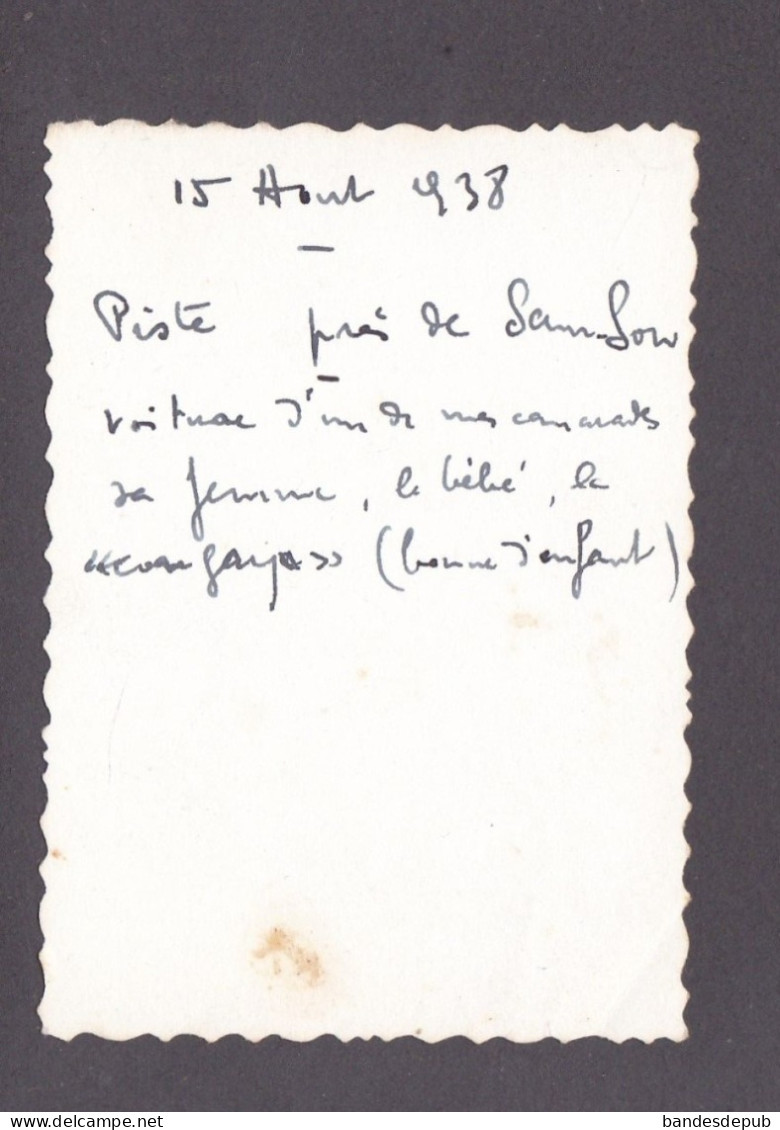 15 Aout 1938
Piste près de Sam-Son
voiture d'un de mes camarades
sa femme, le bébé, la
(bonne d'enfant)
delcampe.net
bandesdepub